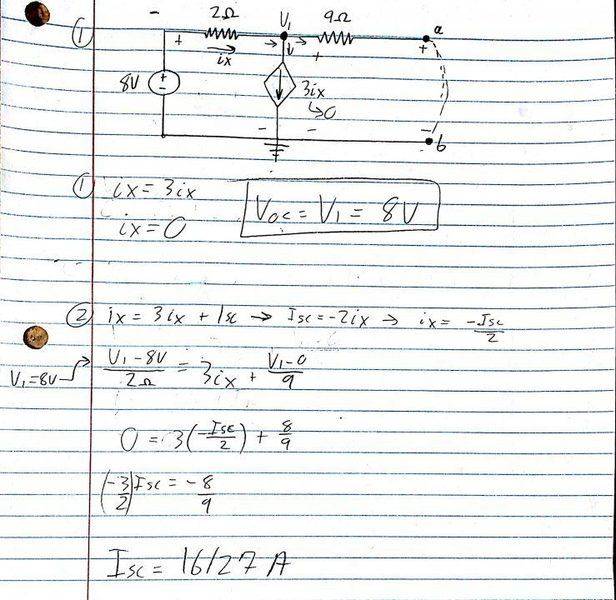 ①
2Ω V₁ 9Ω a
- + ix + +
8V + - 3ix
↳0
- - - b
① ix = 3ix
ix = 0 Voc = V₁ = 8V
② ix = 3ix + Isc → Isc = -2ix → ix = -Isc/2
V₁=8V (V₁-8V)/2Ω = 3ix + (V₁-0)/9
0 = 3(-Isc/2) + 8/9
(-3/2)Isc = -8/9
Isc = 16/27 A